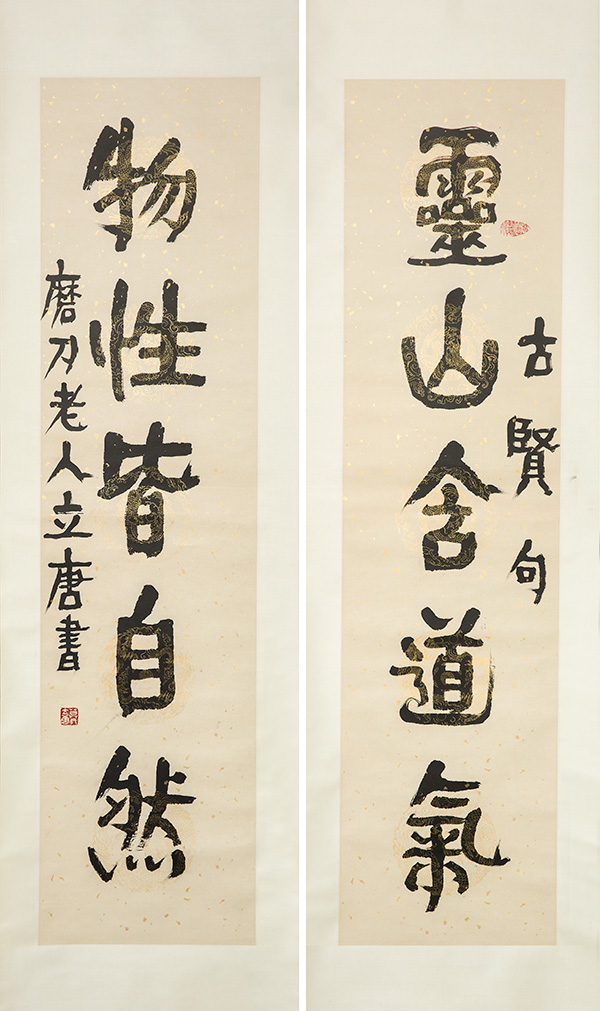 古賢句
靈山含道氣
物性皆自然
磨刀老人立唐書